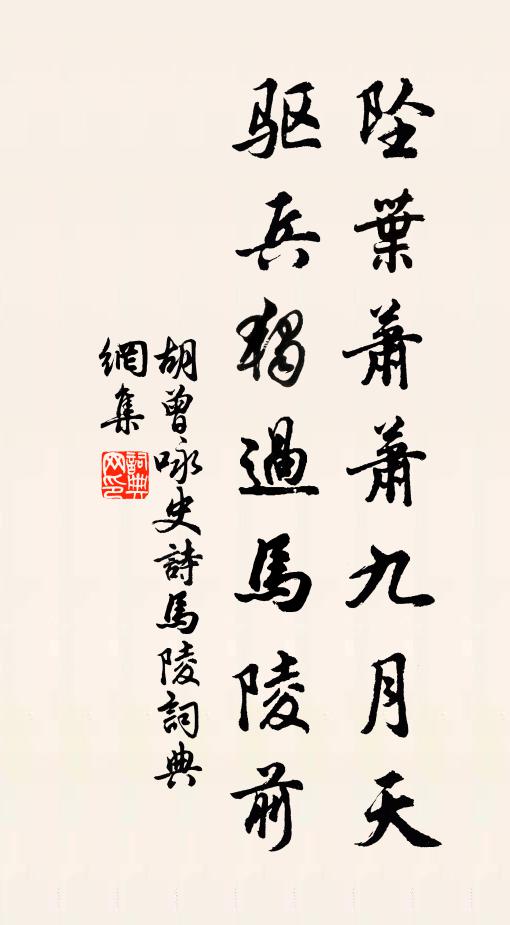 坠葉蕭蕭九月天
驱兵独過馬陵前
胡曾咏史詩馬陵詞典
網集
詞典网印